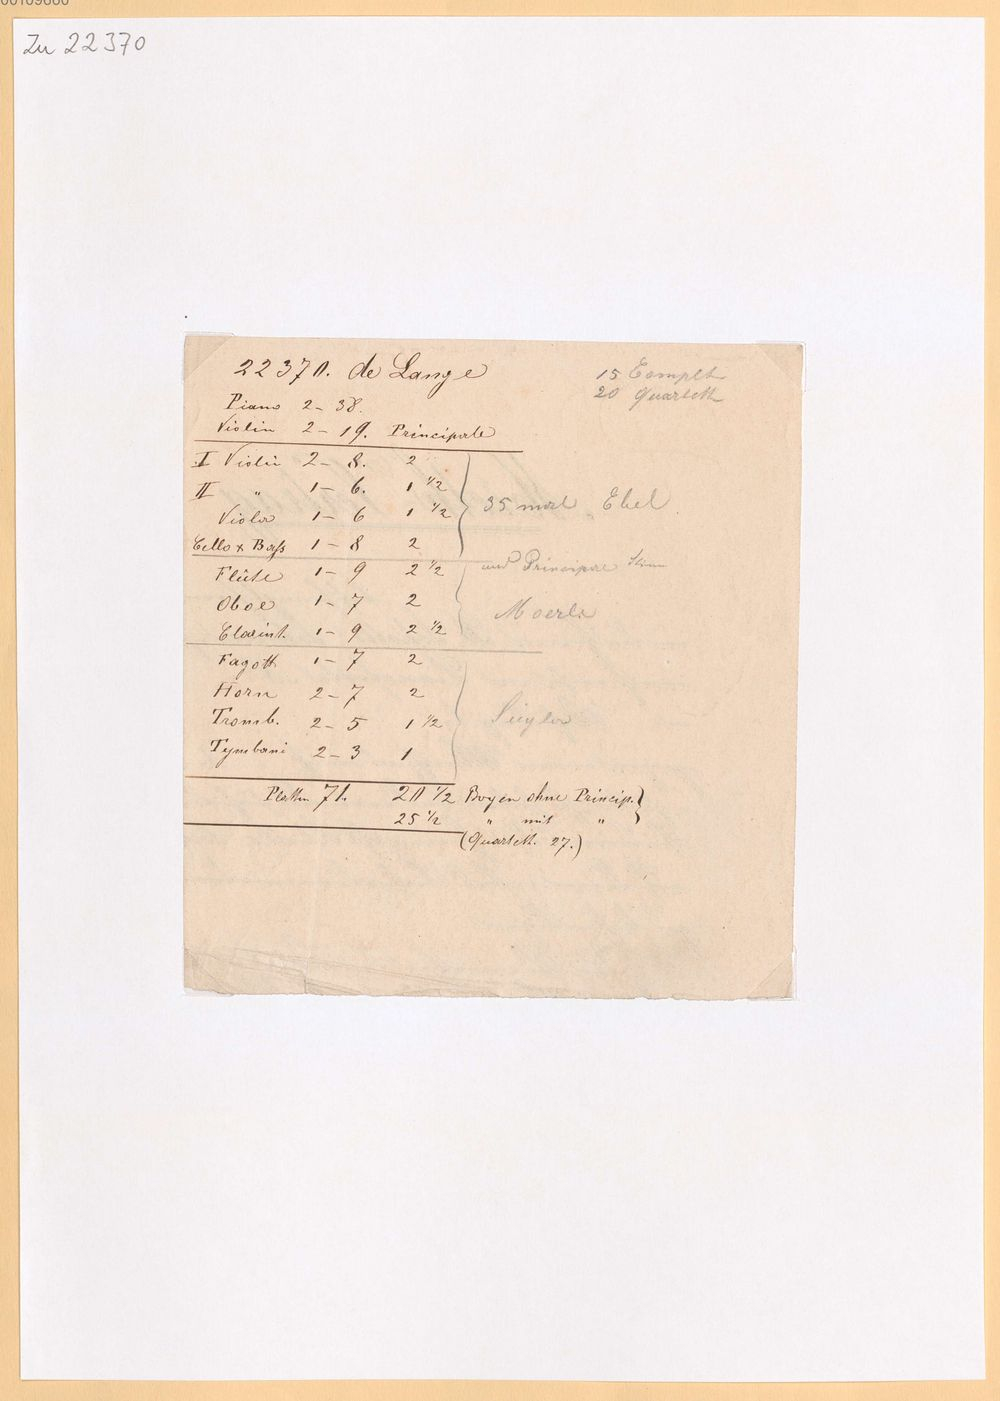 Zu 22370
22370. de Lange
15 Complt
20 Quartett
Piano 2 – 38.
Violin 2 – 19. Principale
I Violin 2 – 8. 2
II " 1 – 6. 1 1/2
Viola 1 – 6 1 1/2
35 mal Ebel
Cello & Bass 1 – 8 2
und Principale Stim
Flûte 1 – 9 2 1/2
Oboe 1 – 7 2
Moerle
Clarint. 1 – 9 2 1/2
Fagott 1 – 7 2
Horn 2 – 7 2
Tromb. 2 – 5 1 1/2
Tymbani 2 – 3 1
Platten 71. 20 1/2 Bogen ohne Princip.
25 1/2 " mit "
(Quartett. 27.)